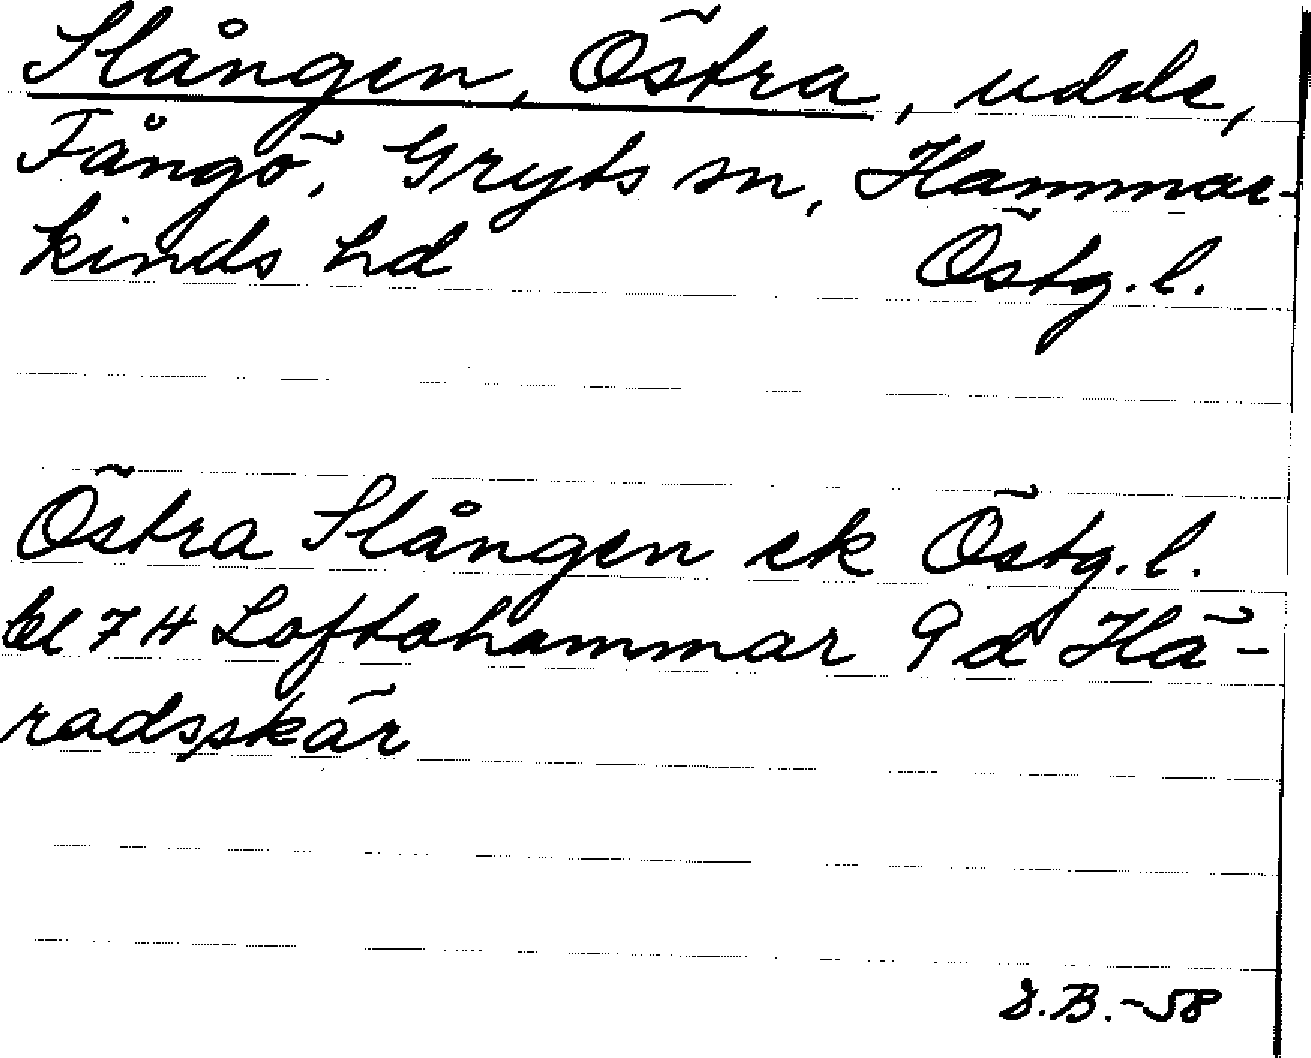 Slången, Östra, udde,
Fångö, Gryts sn, Hammar-
kinds hd Östg. l.
Östra Slången ek Östg. l.
bl 7 H Loftahammar 9 d Hä-
radsskär
S.B.-58